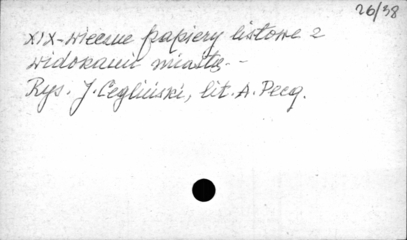 26/38
XIX-wieczne papiery listowe z
widokami miasta. -
Rys. J. Cegliński, lit. A. Pecq.